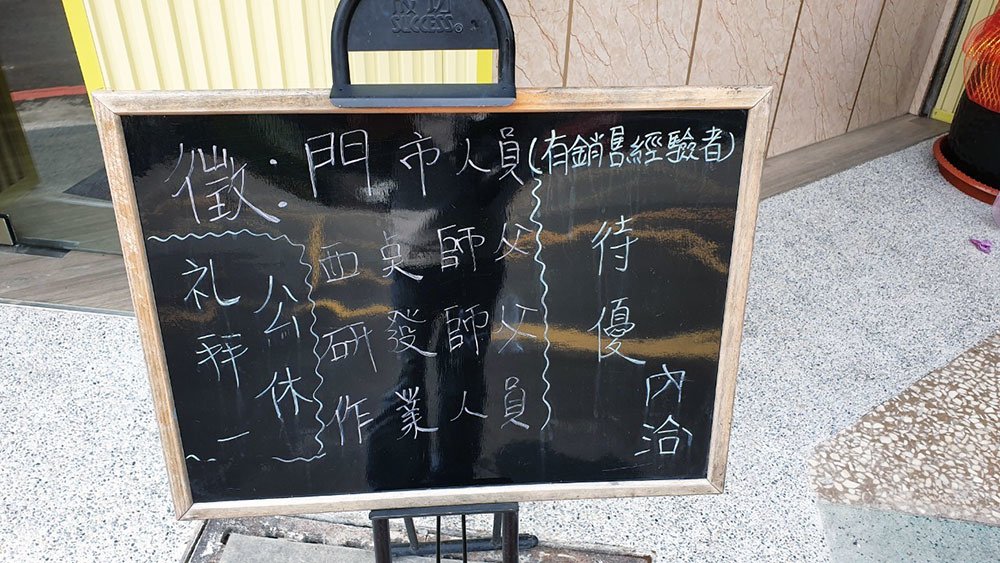 SUCCESS
徵:門市人員(有銷售經驗者)
西奌師父
研發師父
作業人員
待優
內洽
礼拜一
公休